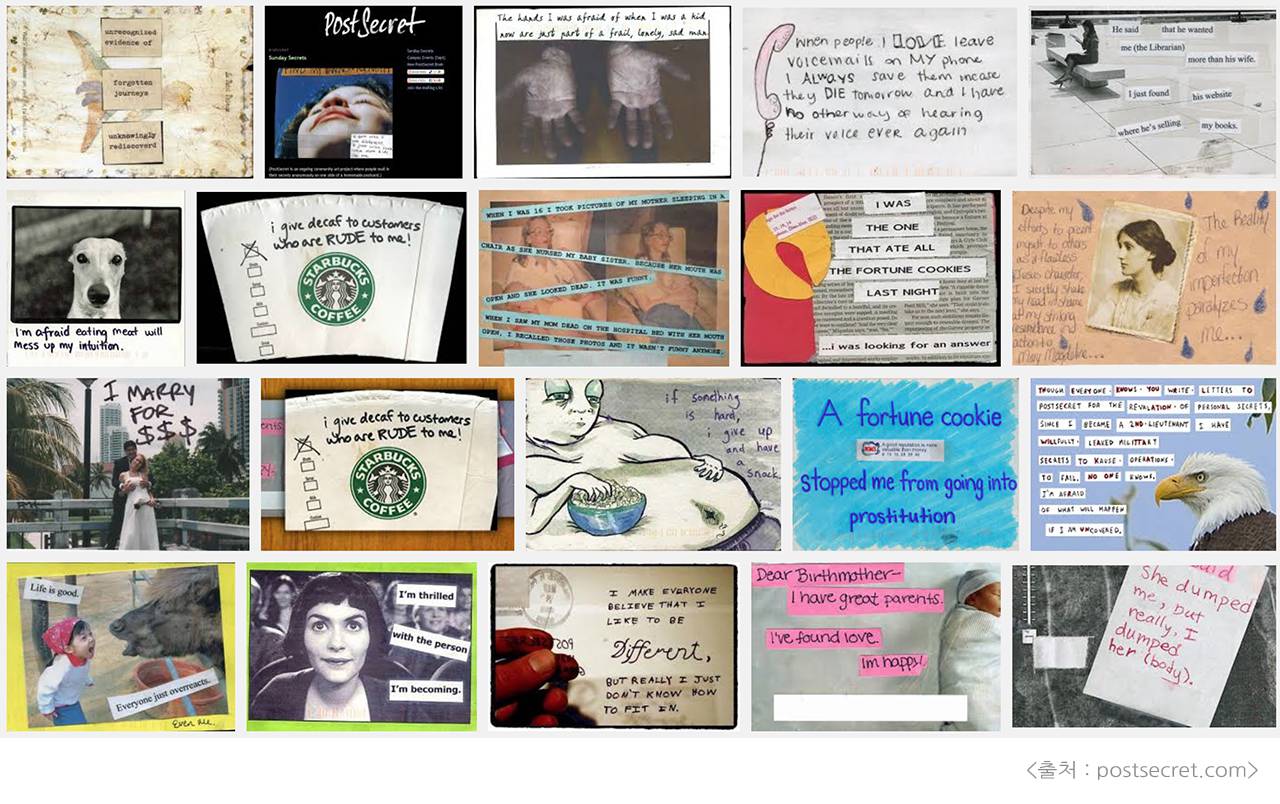 unrecognized
evidence of
forgotten
journeys
unknowingly
rediscoverd
PostSecret
Sunday Secrets
The hands I was afraid of when I was a kid
now are just part of a frail, lonely, sad man.
When people I LOVE leave
voicemails on MY phone
I ALWAYS save them incase
they DIE tomorrow and I have
no other way of hearing
their voice ever again
He said that he wanted
me (the Librarian)
more than his wife.
I just found his website
where he's selling my books.
I'm afraid eating meat will
mess up my intuition.
i give decaf to customers
who are RUDE to me!
STARBUCKS
COFFEE
WHEN I WAS 16 I TOOK PICTURES OF MY MOTHER SLEEPING IN A
CHAIR AS SHE NURSED MY BABY SISTER. BECAUSE HER MOUTH WAS
OPEN AND SHE LOOKED DEAD. IT WAS FUNNY.
WHEN I SAW MY MOM DEAD ON THE HOSPITAL BED WITH HER MOUTH
OPEN, I RECALLED THOSE PHOTOS AND IT WASN'T FUNNY ANYMORE.
I WAS
THE ONE
THAT ATE ALL
THE FORTUNE COOKIES
LAST NIGHT
...i was looking for an answer
Despite my
efforts to
myself to others
as a flawless
I secretly shake
my head in shame
at my striking
resemblance in
action to
The Reality
of my
imperfection
paralyzes
me...
I MARRY
FOR
$$$
i give decaf to customers
who are RUDE to me!
STARBUCKS
COFFEE
if something
is hard,
i give up
and have
a
snack.
A fortune cookie
A good reputation is more
valuable than money
stopped me from going into
prostitution
THOUGH EVERYONE KNOWS YOU WRITE LETTERS TO
POSTSECRET FOR THE REVALATION OF PERSONAL SECRETS,
SINCE I BECAME A 2ND LIEUTENANT I HAVE
WILLFULLY LEAVED MILITTARY
SECRETS TO KAUSE OPERATIONS
TO FAIL. NO ONE KNOWS.
I'M AFRAID
OF WHAT WILL HAPPEN
IF I AM UNCOVERED.
Life is good.
Everyone just overreacts.
Even me.
I'm thrilled
with the person
I'm becoming.
I MAKE EVERYONE
BELIEVE THAT I
LIKE TO BE
Different,
BUT REALLY I JUST
DON'T KNOW HOW
TO FIT IN.
Dear Birthmother-
I have great parents.
I've found love.
Im happy.
said
She dumped
me, but
really, I
dumped
her (body).
<출처 : postsecret.com>